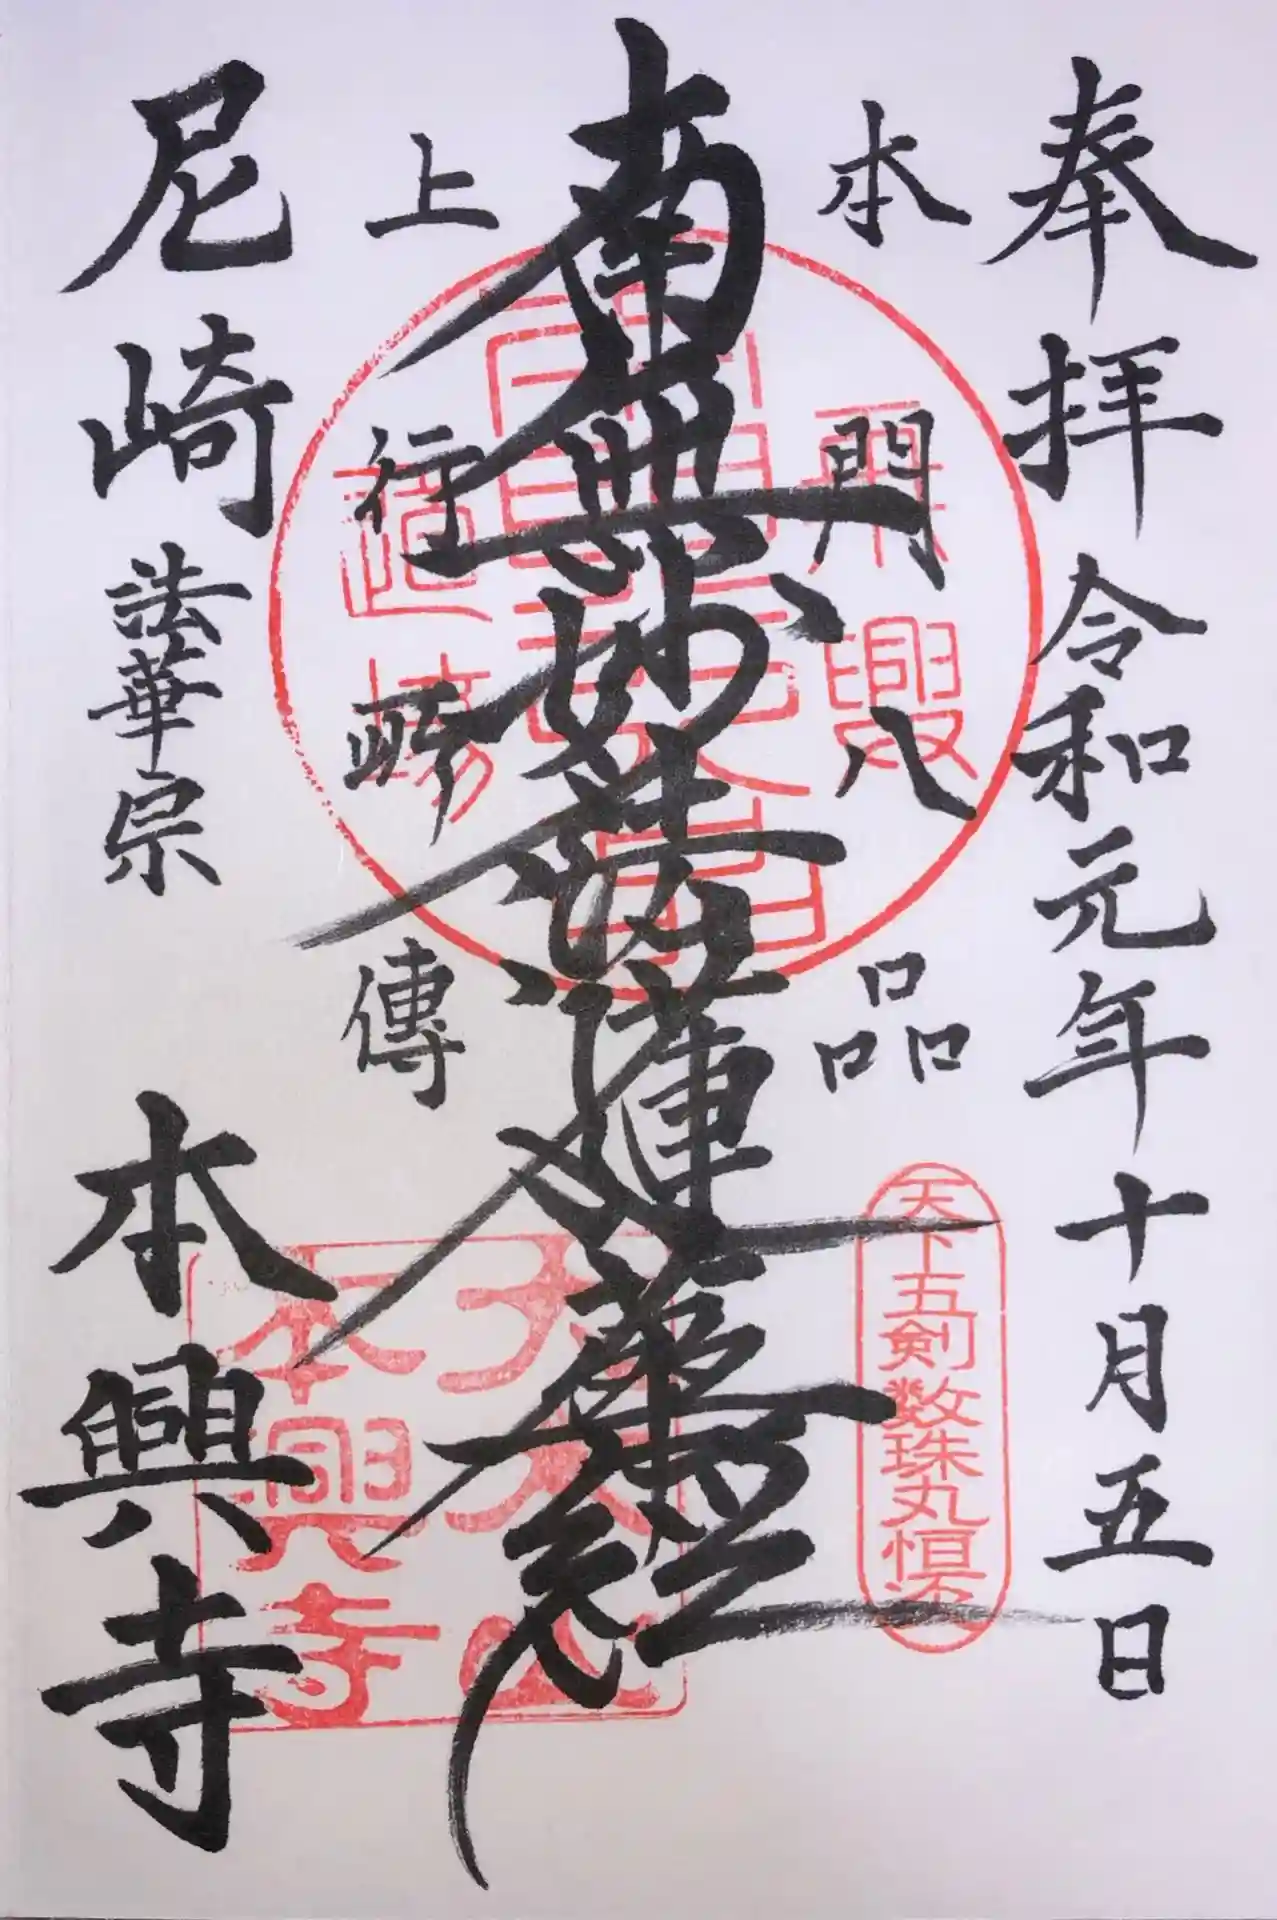 奉拝 令和元年十月五日
本門八品
南無妙法蓮華経
上行所傳
尼崎 法華宗 本興寺
天下五剣数珠丸恒次
本興寺